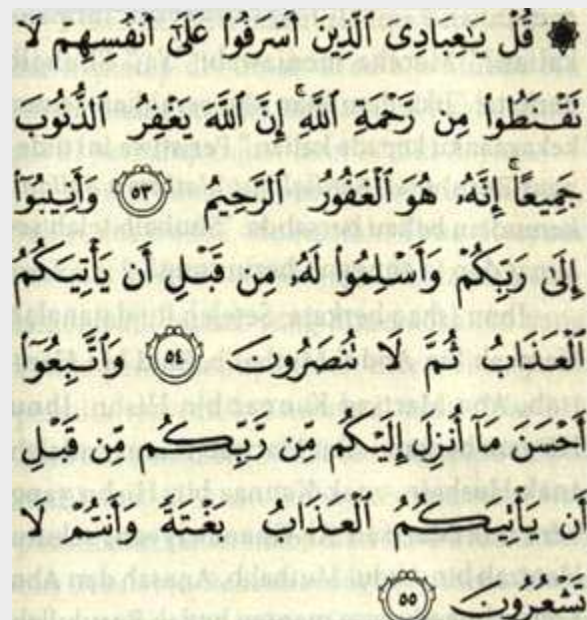 ۞ قُلْ يَٰعِبَادِىَ ٱلَّذِينَ أَسْرَفُوا۟ عَلَىٰٓ أَنفُسِهِمْ لَا
تَقْنَطُوا۟ مِن رَّحْمَةِ ٱللَّهِ ۚ إِنَّ ٱللَّهَ يَغْفِرُ ٱلذُّنُوبَ
جَمِيعًا ۚ إِنَّهُۥ هُوَ ٱلْغَفُورُ ٱلرَّحِيمُ ٥٣ وَأَنِيبُوٓا۟
إِلَىٰ رَبِّكُمْ وَأَسْلِمُوا۟ لَهُۥ مِن قَبْلِ أَن يَأْتِيَكُمُ
ٱلْعَذَابُ ثُمَّ لَا تُنصَرُونَ ٥٤ وَٱتَّبِعُوٓا۟
أَحْسَنَ مَآ أُنزِلَ إِلَيْكُم مِّن رَّبِّكُم مِّن قَبْلِ
أَن يَأْتِيَكُمُ ٱلْعَذَابُ بَغْتَةً وَأَنتُمْ لَا
تَشْعُرُونَ ٥٥